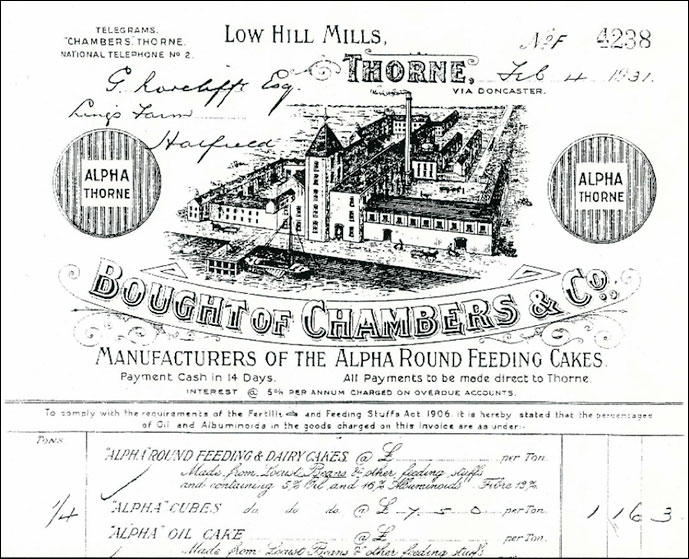 TELEGRAMS.
"CHAMBERS," THORNE.
NATIONAL TELEPHONE Nº 2.
LOW HILL MILLS,
THORNE,
VIA DONCASTER.
No. F 4238
Feb 4 1931.
Esq
Lings Farm
Hatfield
ALPHA
THORNE
ALPHA
THORNE
BOUGHT OF CHAMBERS & Co.,
MANUFACTURERS OF THE ALPHA ROUND FEEDING CAKES.
Payment Cash in 14 Days. All Payments to be made direct to Thorne.
INTEREST @ 5% PER ANNUM CHARGED ON OVERDUE ACCOUNTS.
To comply with the requirements of the and Feeding Stuffs Act 1906, it is hereby stated that the percentages
of Oil and Albuminoids in the goods charged on this invoice are as under:-
TONS
"ALPHA" ROUND FEEDING & DAIRY CAKES. @ £ per Ton.
Made from Locust Beans & other feeding stuffs
and containing 5% Oil and 16% Albuminoids Fibre %
1/4 "ALPHA" CUBES do. do. do. @ £ - 7 - 5 - 0 per Ton. 1 16 3
"ALPHA" OIL CAKE @ £ per Ton.
Made from Locust Beans & other feeding stuffs